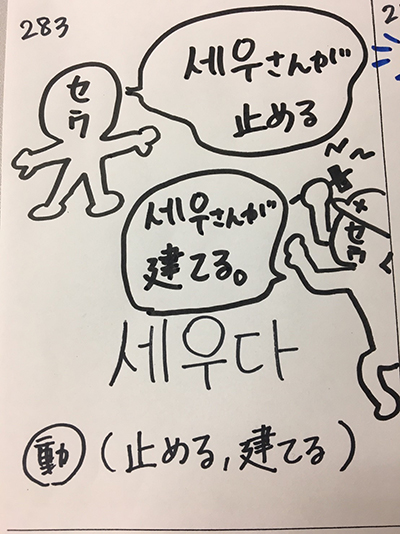 283
セウ
세우さんが
止める
세우さんが
建てる。
セウ
세우다
動 (止める, 建てる)